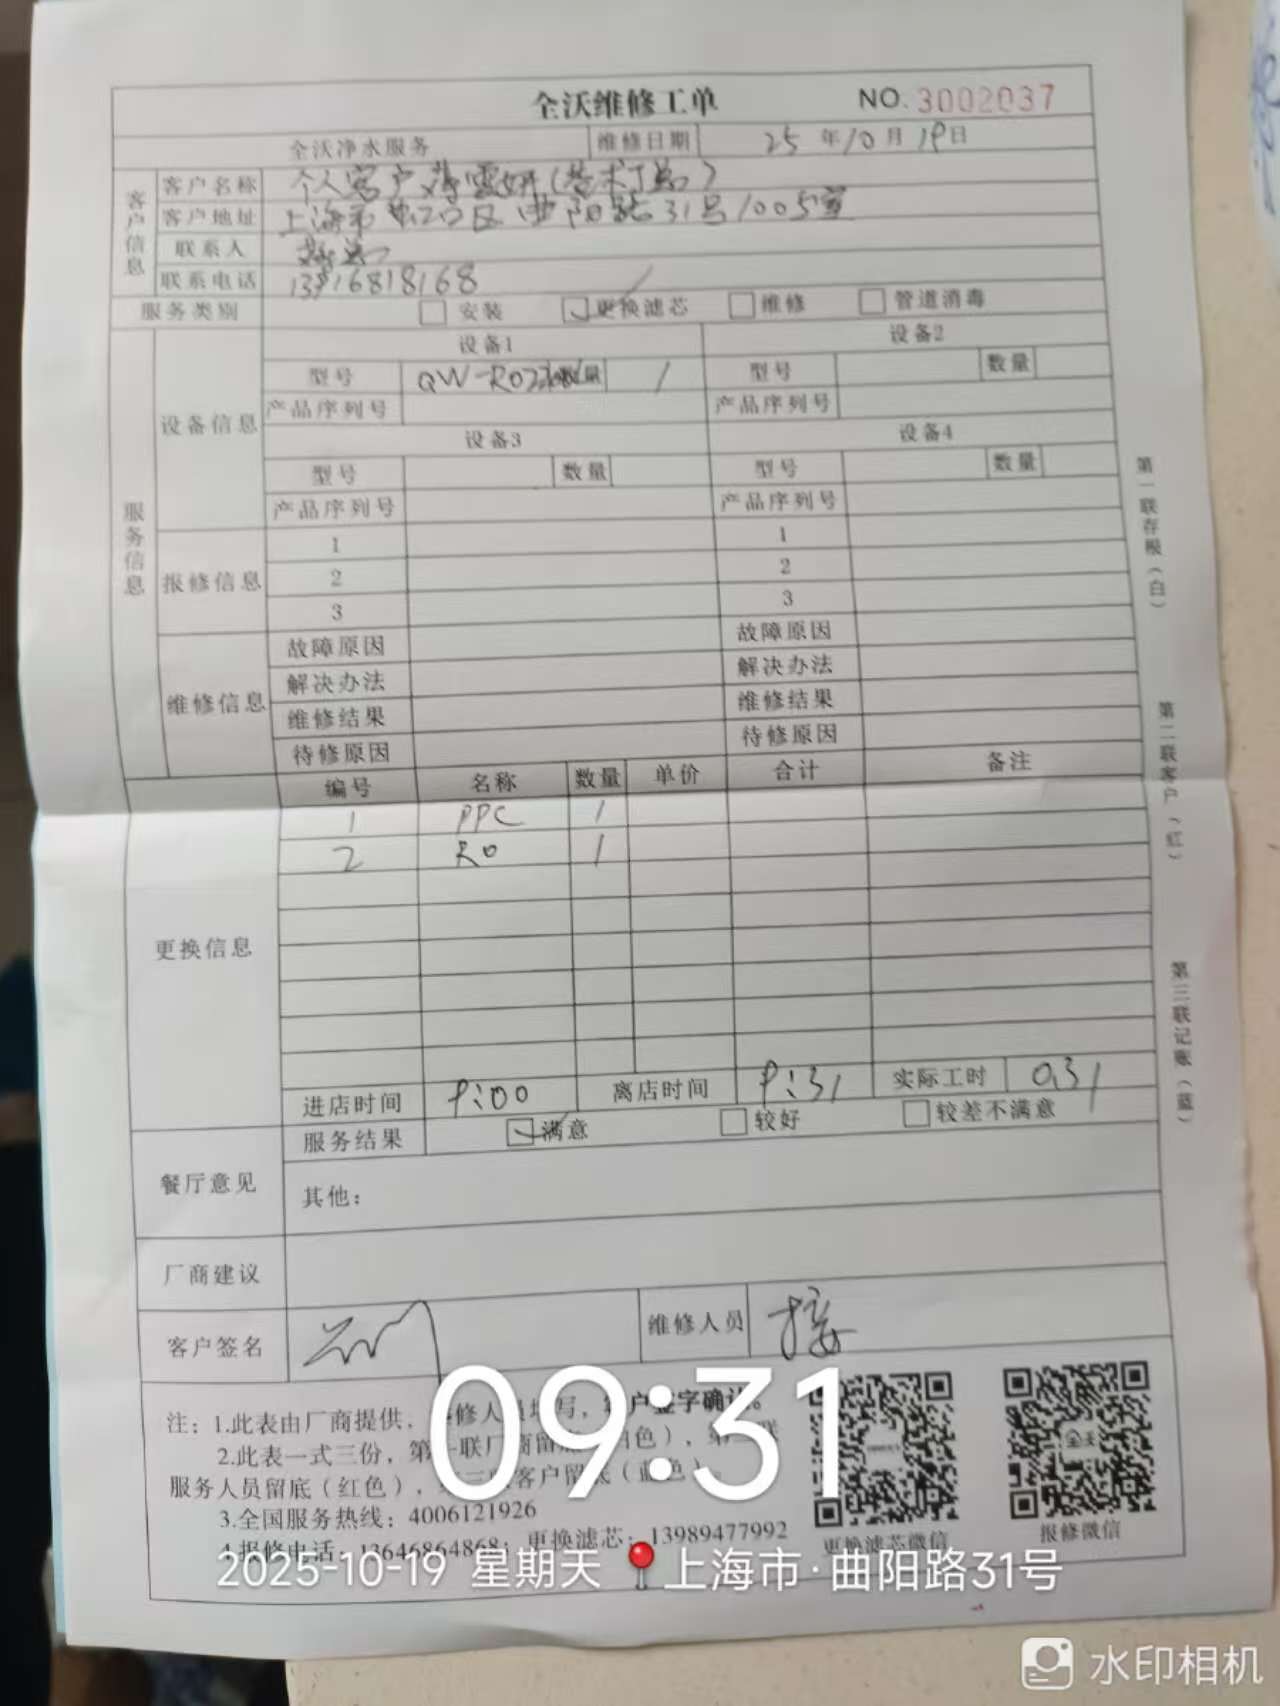 全沃维修工单 NO.3002037
全沃净水服务 维修日期 25年10月19日
客户信息
客户名称 个人客户
客户地址 上海市虹口区曲阳路31号1005室
联系人
联系电话 13916818168
服务类别 安装 更换滤芯 维修 管道消毒
服务信息
设备信息
设备1 设备2
型号 QW-RO 数量 1 型号 数量
产品序列号 产品序列号
设备3 设备4
型号 数量 型号 数量
产品序列号 产品序列号
报修信息
1 1
2 2
3 3
维修信息
故障原因 故障原因
解决办法 解决办法
维修结果 维修结果
待修原因 待修原因
更换信息
编号 名称 数量 单价 合计 备注
1 PPC 1
2 RO 1
进店时间 9:00 离店时间 9:31 实际工时 0.31
餐厅意见
服务结果 满意 较好 较差不满意
其他：
厂商建议
客户签名 维修人员
注：1.此表由厂商提供，维修人员填写，客户签字确认。
2.此表一式三份，第一联厂商留底（白色），第二联
服务人员留底（红色），第三联客户留底（蓝色）
3.全国服务热线：4006121926
4.报修电话：13646864868；更换滤芯：13989477992
更换滤芯微信 报修微信
第一联存根（白）
第二联客户（红）
第三联记账（蓝）
09:31
2025-10-19 星期天 上海市·曲阳路31号
水印相机